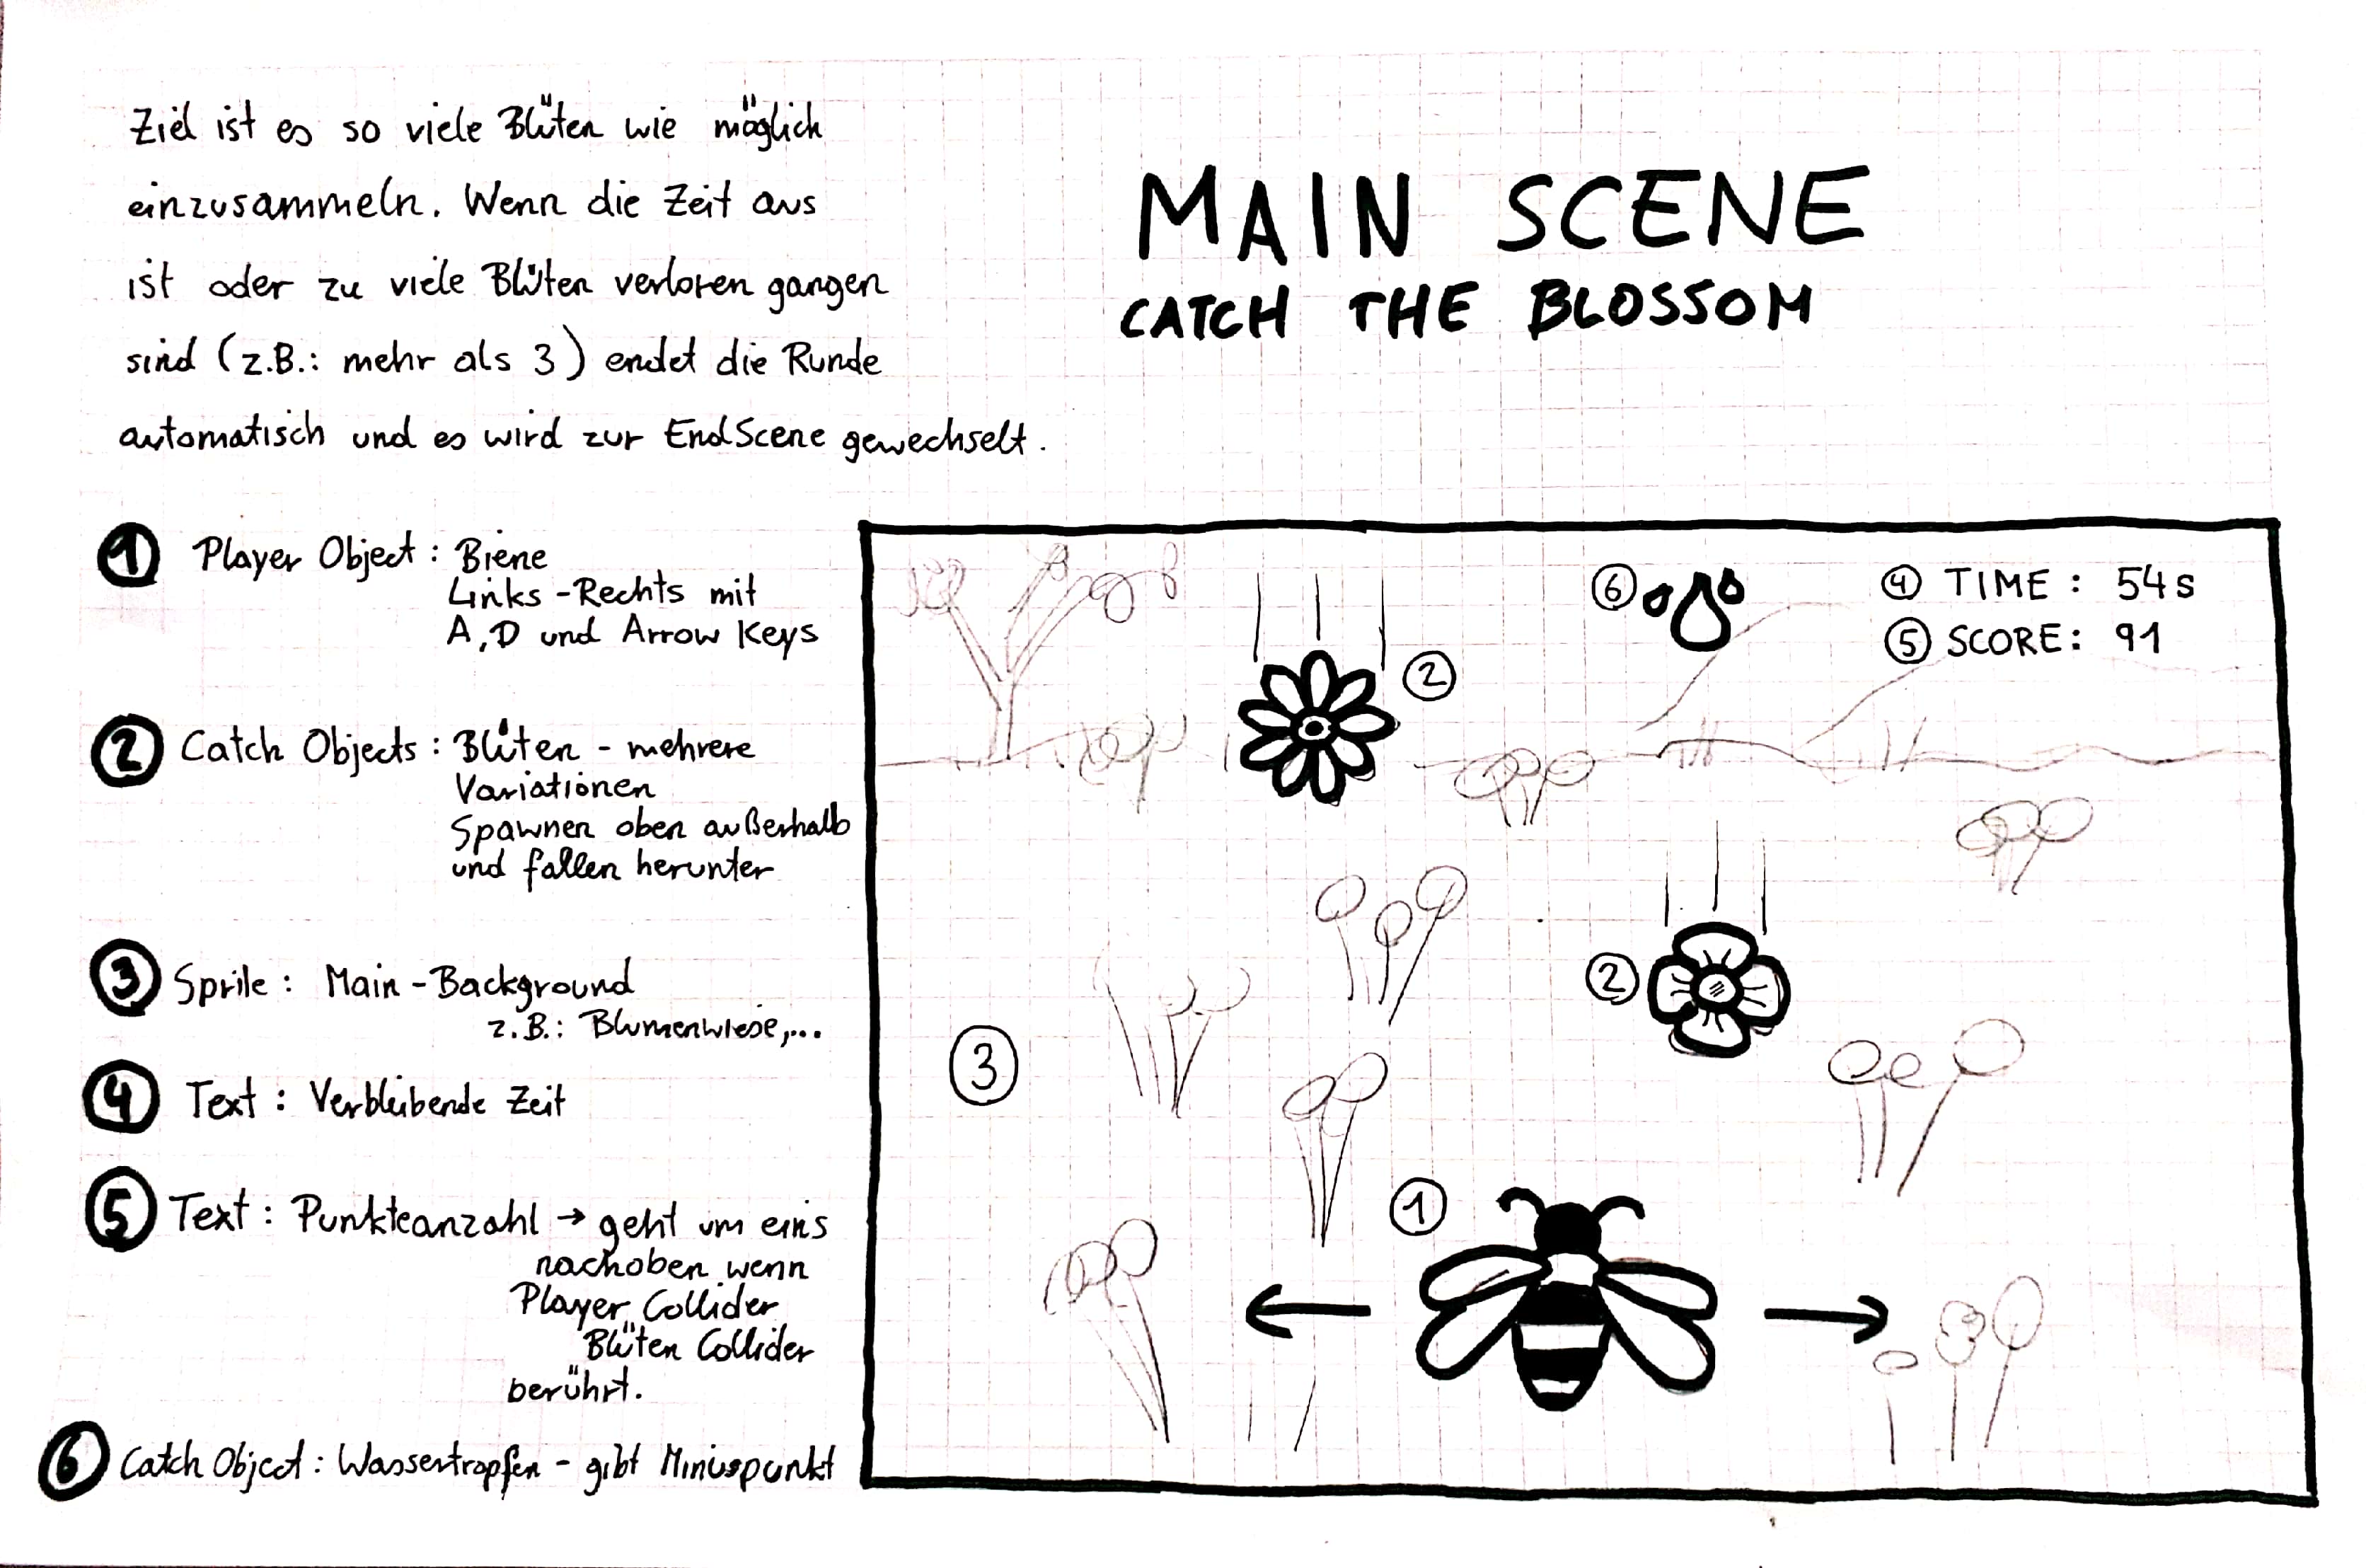 Ziel ist es so viele Blüten wie möglich
einzusammeln. Wenn die Zeit aus
ist oder zu viele Blüten verloren gangen
sind (z.B.: mehr als 3) endet die Runde
automatisch und es wird zur EndScene gewechselt.
MAIN SCENE
CATCH THE BLOSSOM
1 Player Object: Biene
Links-Rechts mit
A,D und Arrow Keys
2 Catch Objects: Blüten - mehrere
Variationen
Spawnen oben außerhalb
und fallen herunter
3 Sprile: Main-Background
z.B.: Blumenwiese,...
4 Text: Verbleibende Zeit
5 Text: Punkteanzahl → geht um eins
nachoben wenn
Player Collider
Blüten Collider
berührt.
6 Catch Object: Wassertropfen - gibt Minuspunkt
6
4 TIME: 54s
5 SCORE: 91
2
2
3
1